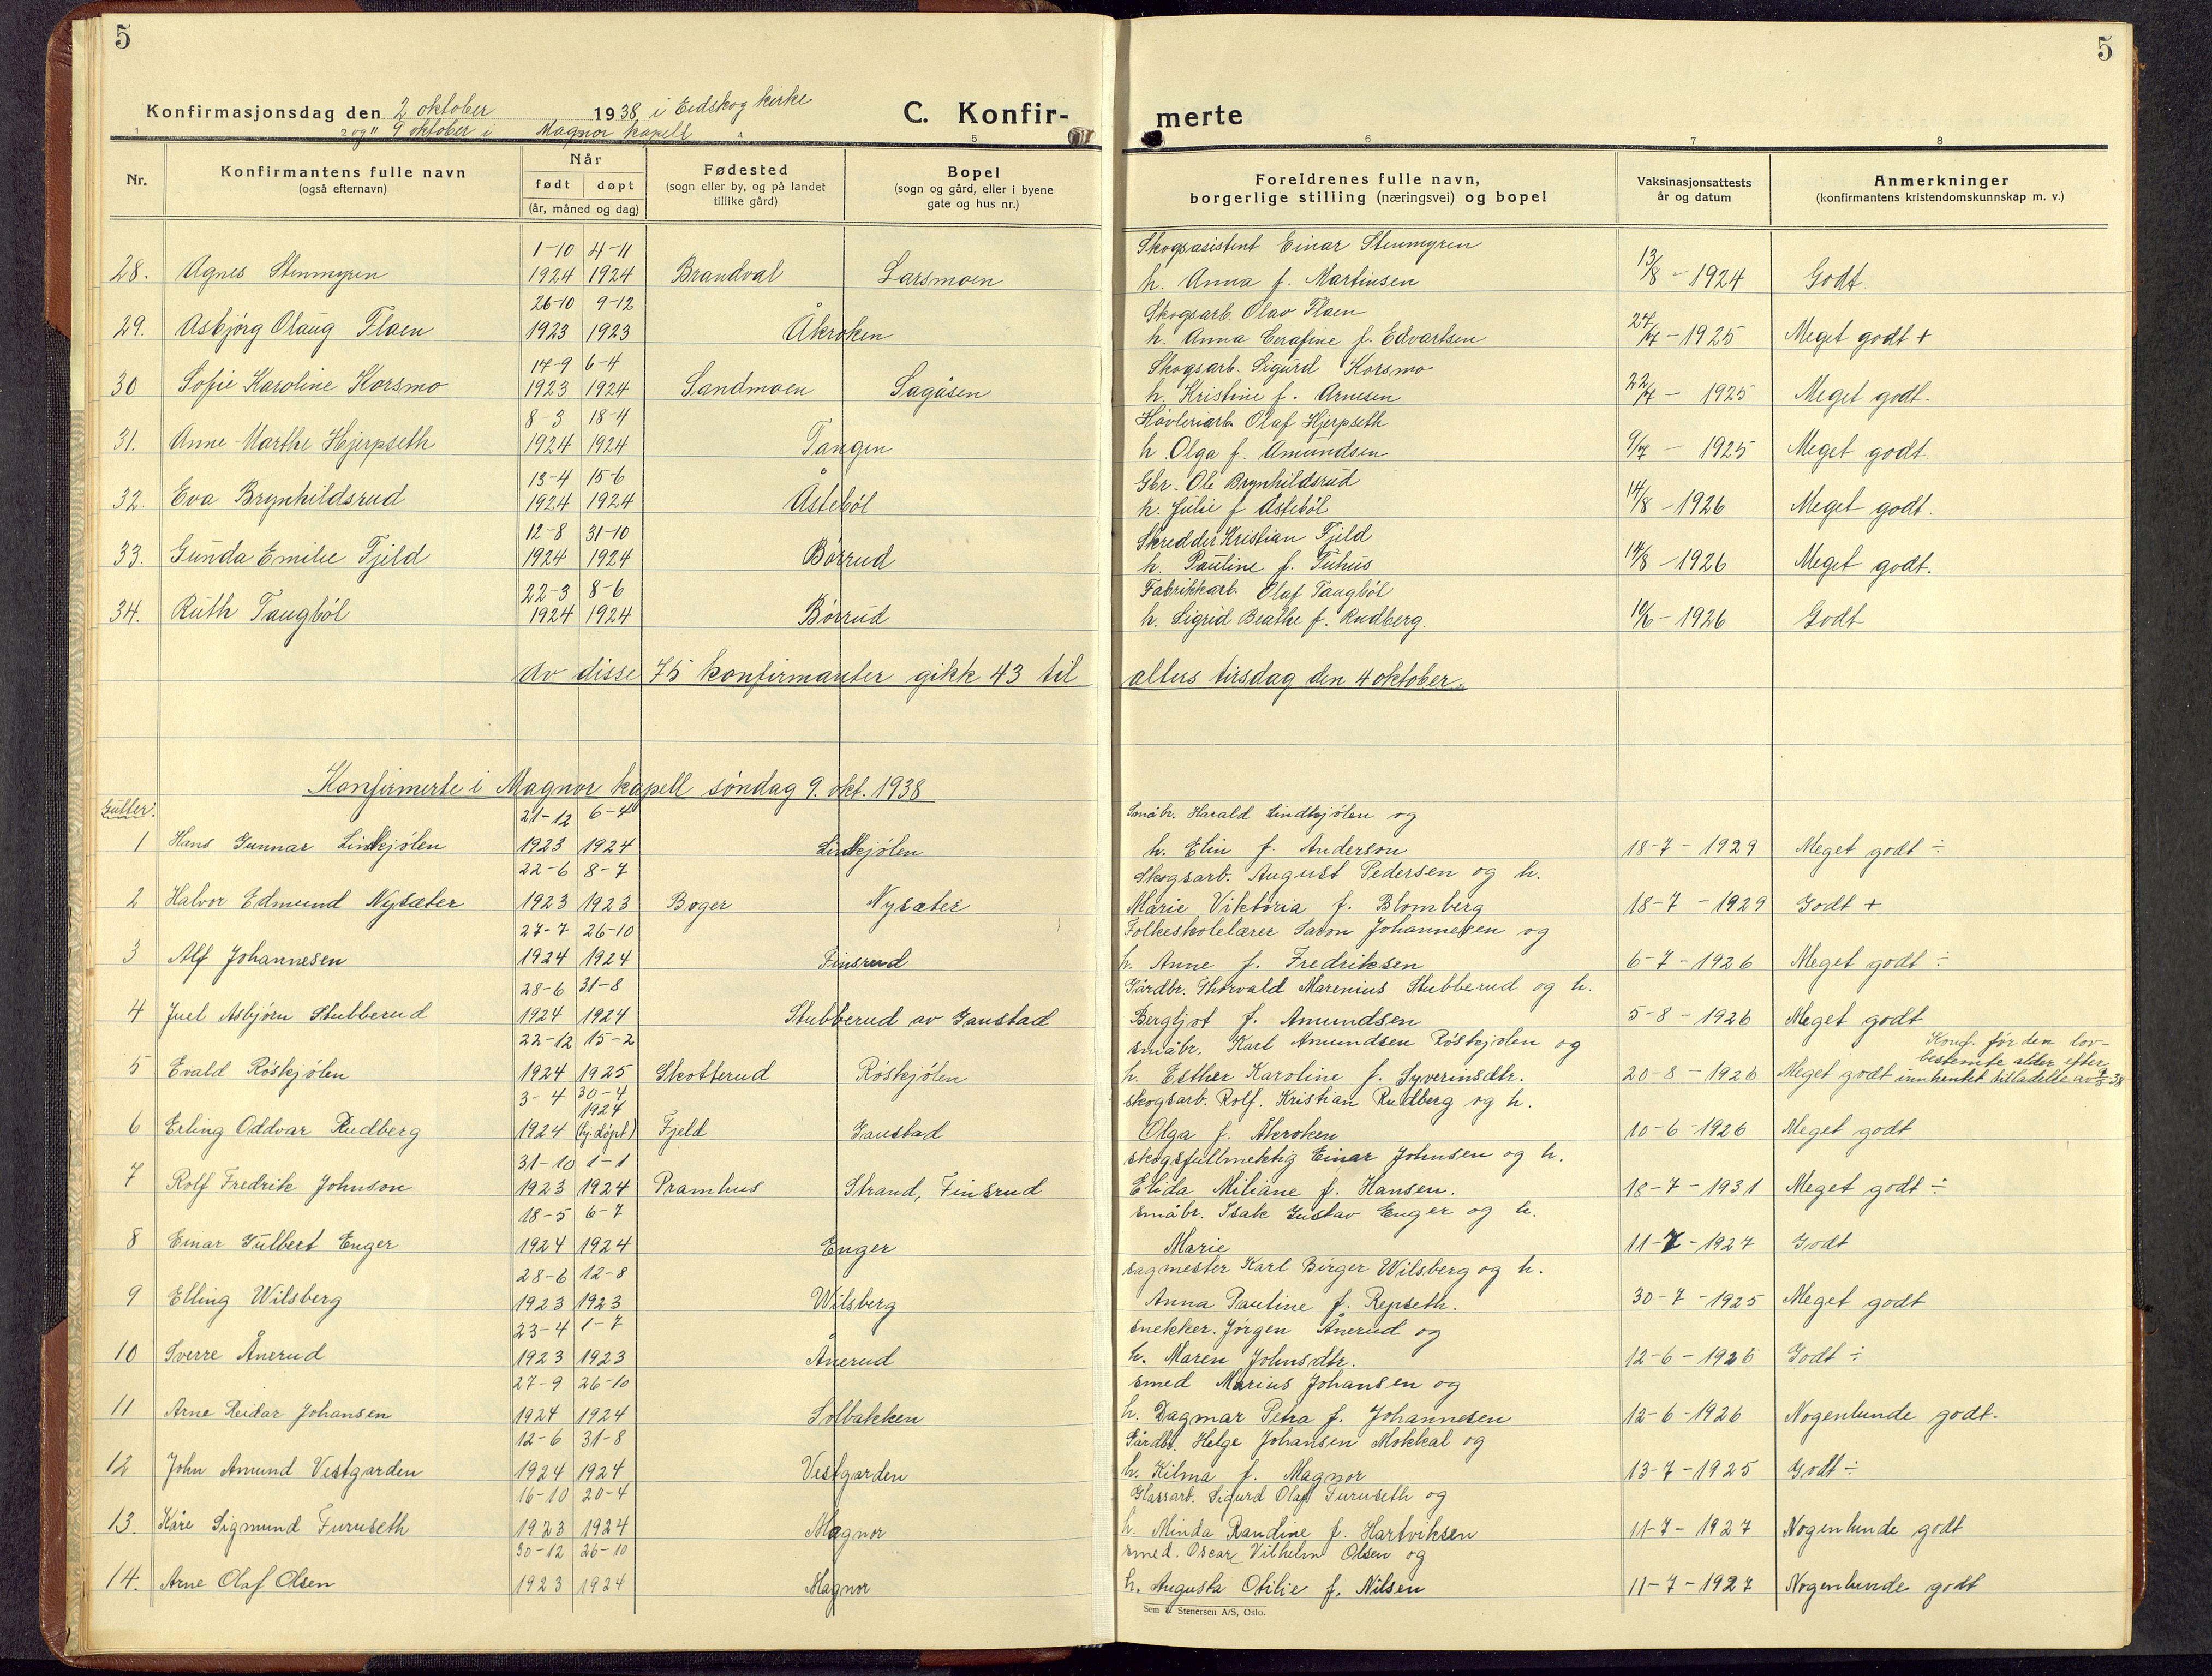 5
5
Konfirmasjonsdag den 2 oktober 1938 i Eidskog kirke
og 9 oktober i Magnor kapell
C. Konfir-
merte
1
5
6
7
8
Nr.
Konfirmantens fulle navn
(også efternavn)
Når
født døpt
(år, måned og dag)
Fødested
(sogn eller by, og på landet
tillike gård)
Bopel
(sogn og gård, eller i byene
gate og hus nr.)
Foreldrenes fulle navn,
borgerlige stilling (næringsvei) og bopel
Vaksinasjonsattests
år og datum
Anmerkninger
(konfirmantens kristendomskunnskap m. v.)
1-10 4-11 Skogsasistent Einar Stenmyren
28. Agnes Stenmyren 1924 1924 Brandval Larsmoen h. Anna f. Martinsen 13/8 - 1924 Godt.
26-10 9-12 Skogsarb. Olav Flaen
29. Asbjörg Olaug Flaen 1923 1923 Åkroken h. Anna Serafine f. Edvartsen 24/7 - 1925 Meget godt +
14-9 6-4 Skogsarb. Sigurd Korsmo
30 Sofie Karoline Korsmo 1923 1924 Sandmoen Sagåsen h. Kristine f. Arnesen 22/7 - 1925 Meget godt.
8-3 18-4 Høvleriarb. Olaf Hjerpseth
31. Anne-Marthe Hjerpseth 1924 1924 Tangen h. Olga f. Amundsen 9/7 - 1925 Meget godt.
13-4 15-6 Gbr. Ole Brynhildsrud
32. Eva Brynhildsrud 1924 1924 Åsteböl h. Julie f Åsteböl 14/8 - 1926 Meget godt.
12-8 31-10 Skredder Kristian Fjeld
33. Gunda Emilie Fjeld 1924 1924 Börrud h. Pauline f. Tuhus 14/8 - 1926 Meget godt.
22-3 8-6 Fabrikkarb. Olaf Taugböl
34. Ruth Taugböl 1924 1924 Börrud h. Sigrid Beathe f. Rudberg. 10/6 - 1926 Godt
Av disse 75 konfirmanter gikk 43 til alters tirsdag den 4 oktober.
Konfirmerte i Magnor kapell söndag 9. okt. 1938
Gutter:
21-12 6-4 Småbr. Harald Lindkjølen og
1 Hans Gunnar Lindkjølen 1923 1924 Lindkjølen h. Elin f. Anderson 18-7-1929 Meget godt ÷
22-6 8-7 Skogsarb. August Pedersen og h.
2 Halvor Edmund Nysæter 1923 1923 Boger Nysæter Marie Viktoria f. Blomberg 18-7-1929 Godt +
27-7 26-10 Folkeskolelærer Johannesen og
3 Alf Johannesen 1924 1924 Finsrud h. Anne f. Fredriksen 6-7-1926 Meget godt ÷
28-6 31-8 Gårdbr. Thorvald Marenius Stubberud og h.
4 Juel Asbjørn Stubberud 1924 1924 Stubberud av Gaustad Bergljot f. Amundsen 5-8-1926 Meget godt
22-12 15-2 småbr. Karl Amundsen Röskjølen og Konf. før den lov-
bestemte alder efter
5 Evald Röskjølen 1924 1925 Skotterud Röskjølen h. Esther Karoline f. Syverinsdtr. 20-8-1926 Meget godt innhentet tilladelse av
3-4 30-4 skogsarb. Rolf. Kristian Rudberg og h.
1924
6 Erling Oddvar Rudberg 1924 (hj.døpt) Fjeld Gaustad Olga f. Åkroken 10-6-1926 Meget godt
31-10 1-1 skogsfullmektig Einar Johnsen og h.
7 Rolf Fredrik Johnson 1923 1924 Pramhus Strand, Finsrud Elida Miliane f. Hansen. 18-7-1931 Meget godt ÷
18-5 6-7 småbr. Isak Gustav Enger og h.
8 Einar Gulbert Enger 1924 1924 Enger Marie 11-7-1927 Godt
28-6 12-8 sagmester Karl Birger Wilsberg og h.
9 Elling Wilsberg 1923 1923 Wilsberg Anna Pauline f. Repseth. 30-7-1925 Meget godt
23-4 1-7 snekker. Jørgen Ånerud og
10 Sverre Ånerud 1923 1923 Ånerud h. Maren Johnsdtr. 12-6-1926 Godt ÷
27-9 26-10 smed Marius Johansen og
11 Arne Reidar Johansen 1924 1924 Solbakken h. Dagmar Petra f. Johannesen 12-6-1926 Nogenlunde godt.
12-6 31-8 Gårdbr. Helge Johansen Mokkal og
12 John Amund Vestgarden 1924 1924 Vestgarden h. Kilma f. Magnor 13-7-1925 Godt ÷
16-10 20-4 Glassarb. Sigurd Olaf Furuseth og
13. Kåre Sigmund Furuseth 1923 1924 Magnor h. Minda Randine f. Hartviksen 11-7-1927 Nogenlunde godt
30-12 26-10 smed. Oscar Vilhelm Olsen og
14. Arne Olaf Olsen 1923 1924 Magnor h. Augusta Otilie f. Nilsen 11-7-1927 Nogenlunde godt
Sem & Stenersen A/S, Oslo.